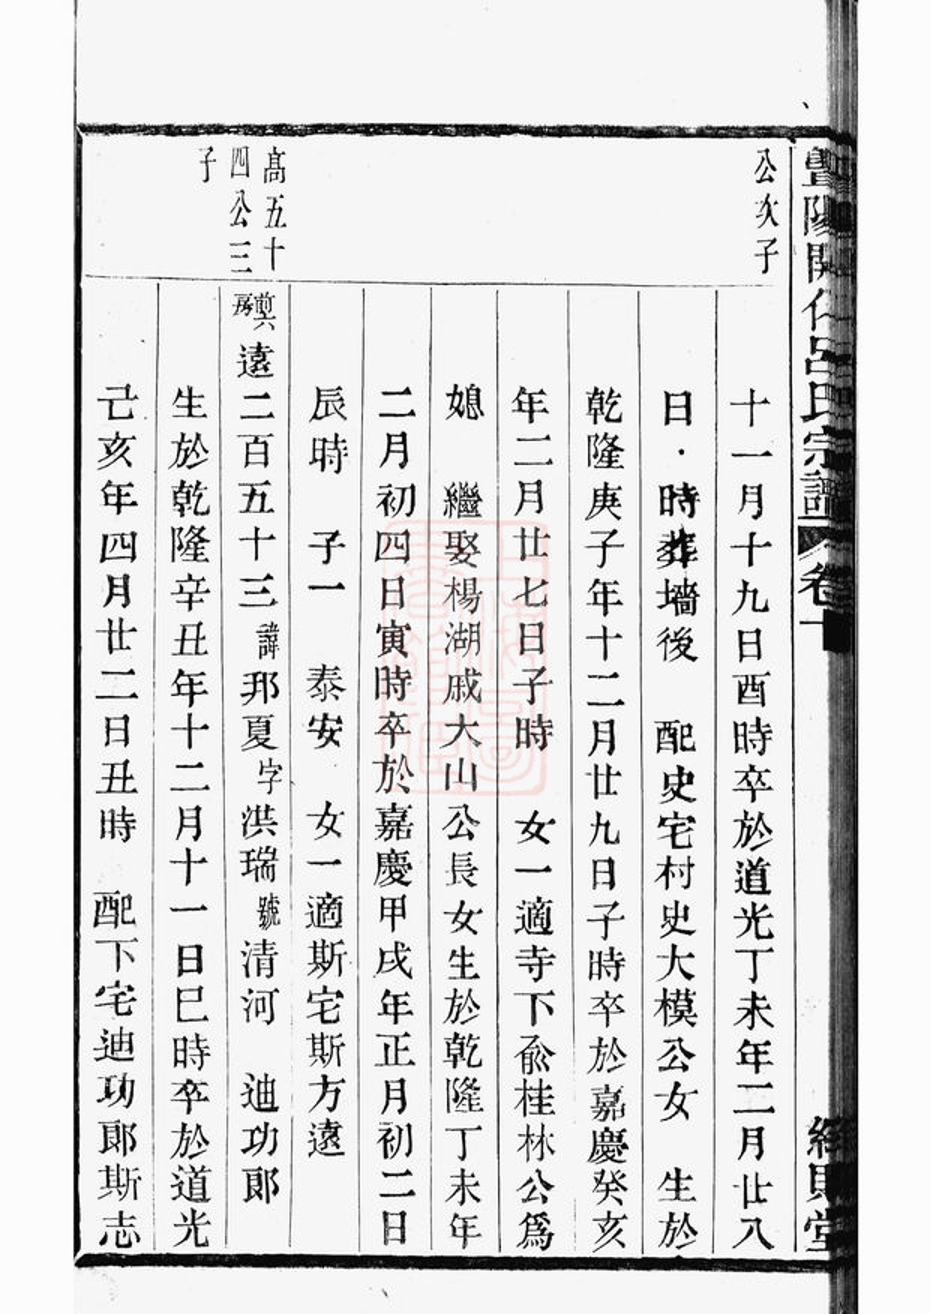 暨陽開化呂氏宗譜 卷十 經則堂
公次子
十一月十九日酉時卒於道光丁未年二月廿八
日 時葬墻後 配史宅村史大模公女 生於
乾隆庚子年十二月廿九日子時卒於嘉慶癸亥
年二月廿七日子時 女一適寺下俞桂林公爲
媳 繼娶楊湖戚大山公長女生於乾隆丁未年
二月初四日寅時卒於嘉慶甲戌年正月初二日
辰時 子一 泰安 女一適斯宅斯方遠
高五十
四公三
子
遠二百五十三諱邦夏字洪瑞號清河 迪功郎
生於乾隆辛丑年十二月十一日巳時卒於道光
己亥年四月廿二日丑時 配下宅迪功郎斯志